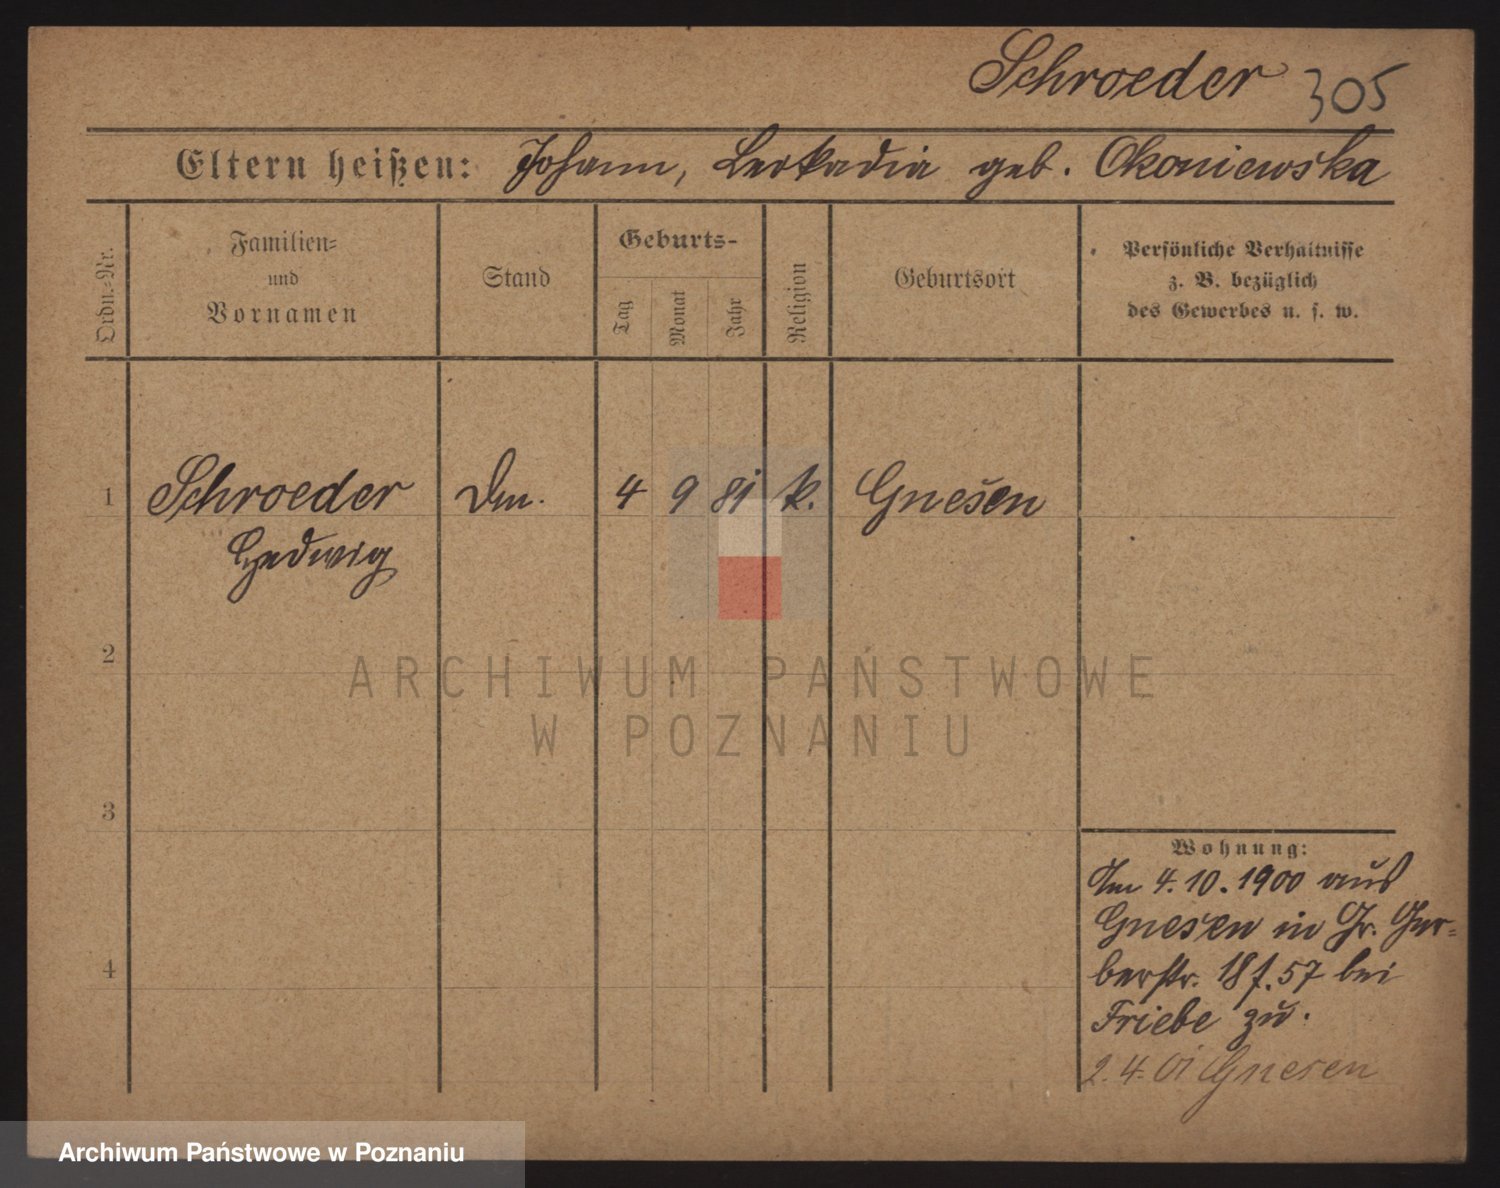 Schroeder 305
Eltern heißen: Johann, Leokadia geb. Okoniewska
Ordn.-Nr.
Familien-
und
Vornamen
Stand
Geburts-
Tag
Monat
Jahr
Religion
Geburtsort
Persönliche Verhältnisse
z. B. bezüglich
des Gewerbes u. s. w.
1 Schroeder 4 9 81 k. Gnesen
Hedwig
2
3
4
Wohnung:
Am 4.10.1900 aus
Gnesen in Gr. Ger-
berstr. 18 f. 57 bei
Friebe zu.
2.4.01 Gnesen
ARCHIWUM PAŃSTWOWE
W POZNANIU
Archiwum Państwowe w Poznaniu